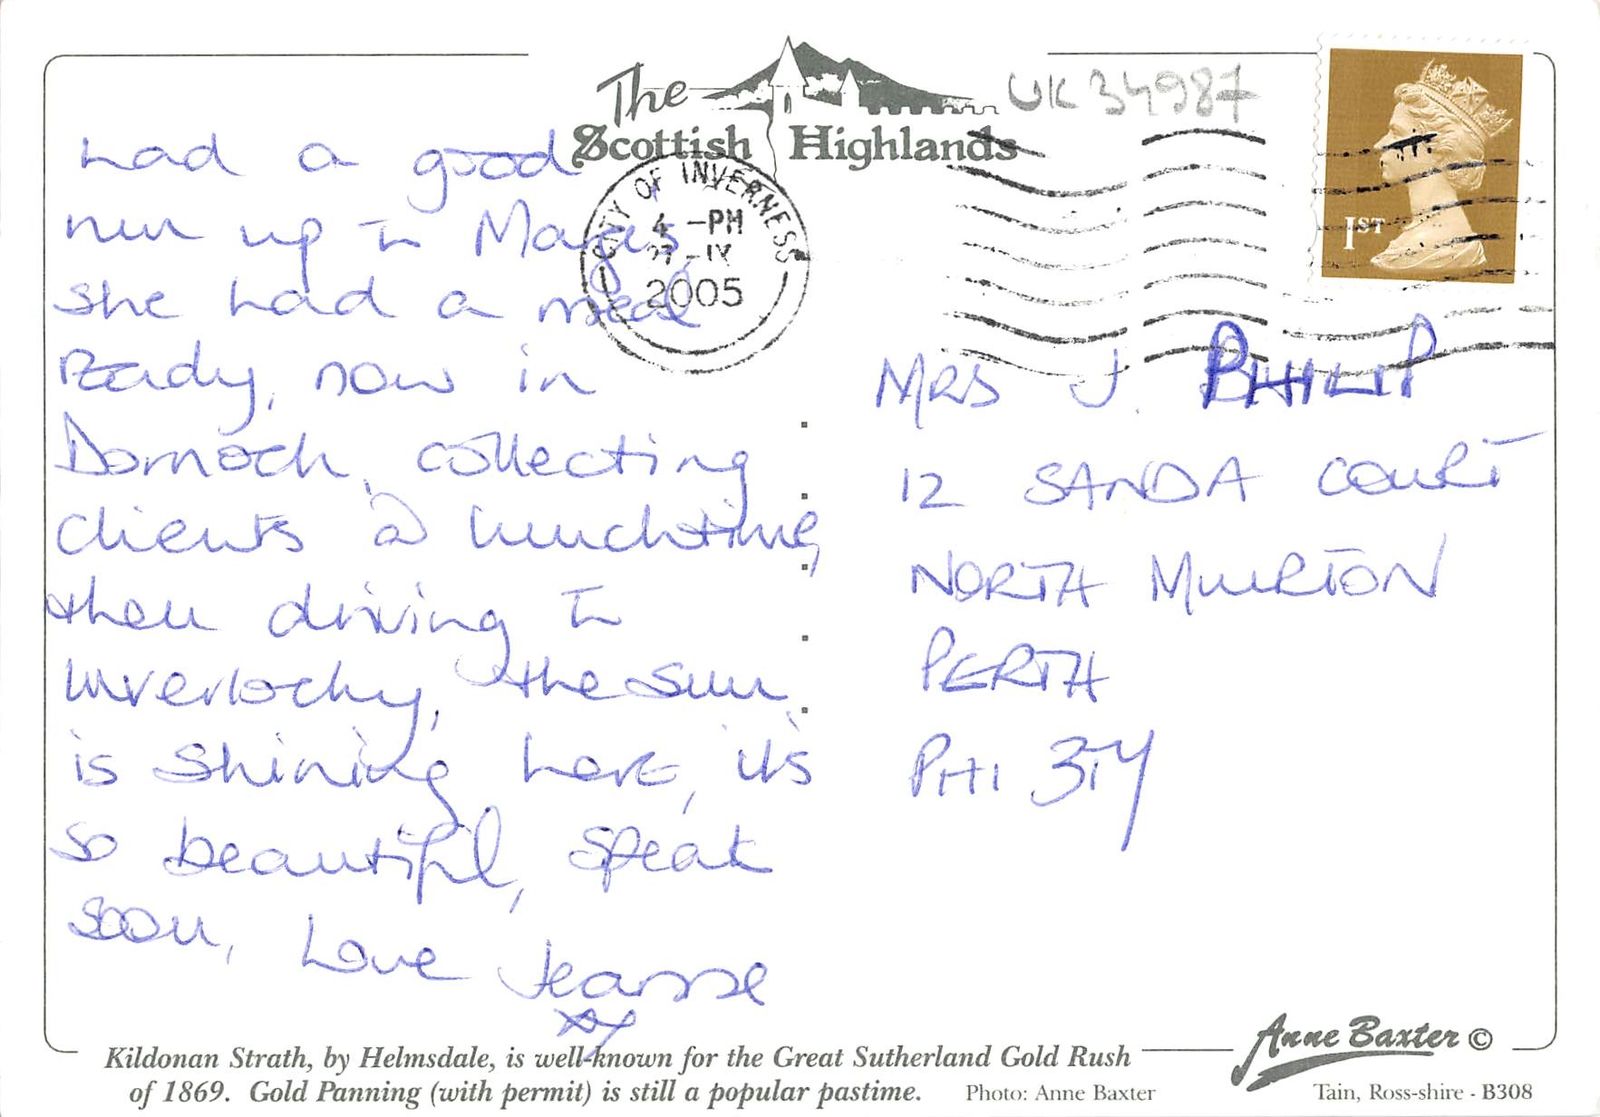 The
Scottish Highlands
UK 34987
1ST
CITY OF INVERNESS
4 -PM
27-IV
2005
had a good
run up to
she had a meal
Ready, now in
Dornoch, collecting
clients @ lunchtime,
then driving to
Inverlochy, the sun
is shining here, it's
so beautiful, speak
soon, Love Jeanne
xx
MRS J. PHILIP
12 SANDA COURT
NORTH MUIRTON
PERTH
PH1
Kildonan Strath, by Helmsdale, is well-known for the Great Sutherland Gold Rush
of 1869. Gold Panning (with permit) is still a popular pastime. Photo: Anne Baxter
Anne Baxter ©
Tain, Ross-shire - B308